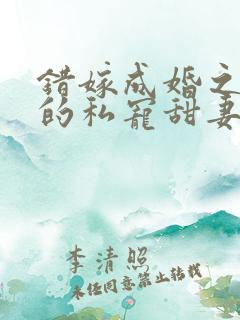 错嫁成婚之
的私宠甜妻
李清照
未经同意禁止转载